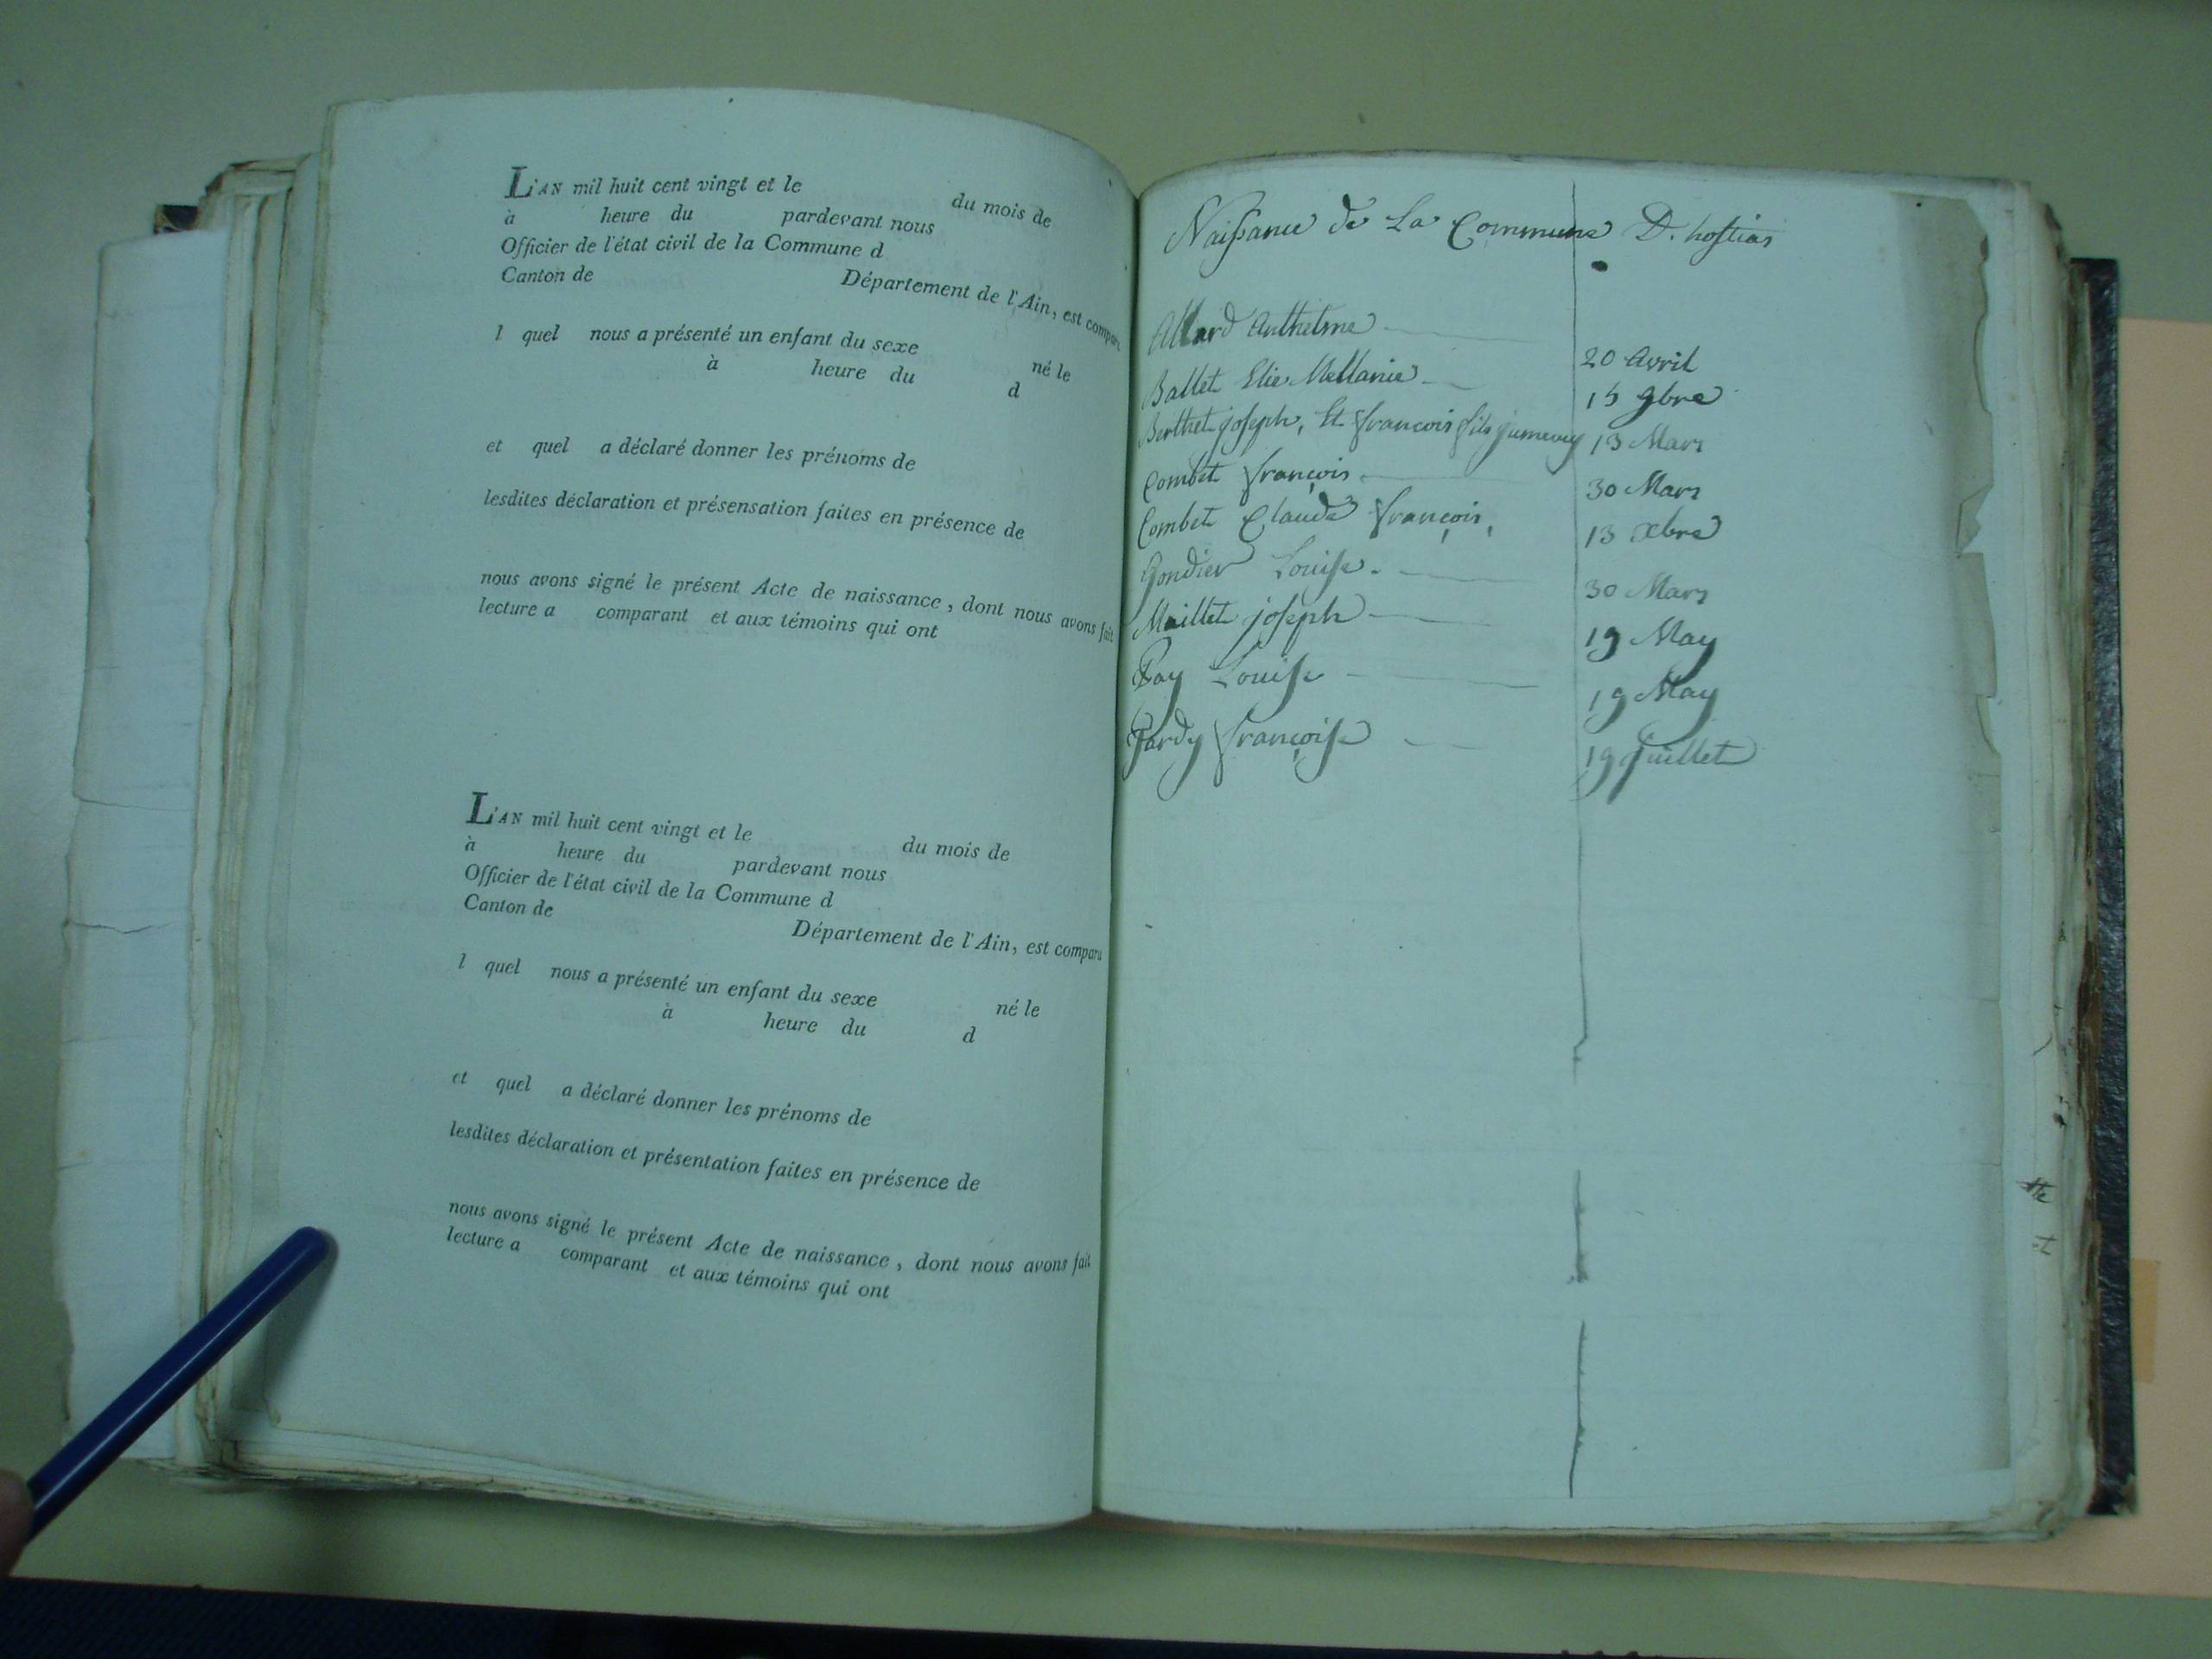 L'AN mil huit cent vingt et le du mois de
à heure du pardevant nous
Officier de l'état civil de la Commune d
Canton de Département de l'Ain, est compar
l quel nous a présenté un enfant du sexe né le
à heure du d
et quel a déclaré donner les prénoms de
lesdites déclaration et présensation faites en présence de
nous avons signé le présent Acte de naissance, dont nous avons fait
lecture a comparant et aux témoins qui ont
L'AN mil huit cent vingt et le du mois de
à heure du pardevant nous
Officier de l'état civil de la Commune d
Canton de Département de l'Ain, est comparu
l quel nous a présenté un enfant du sexe né le
à heure du d
et quel a déclaré donner les prénoms de
lesdites déclaration et présentation faites en présence de
nous avons signé le présent Acte de naissance, dont nous avons fait
lecture a comparant et aux témoins qui ont
Naissance de La Commune D. hostias
Allard Anthelme 20 Avril
Ballet Elie Mellanie 15 9bre
Berthet joseph, Et francois fils jumeaux 13 Mars
Combet françois 30 Mars
Combet Claude françois, 13 xbre
Gondier Louise 30 Mars
Maillet joseph 19 May
Pay Louise 19 May
Tardy françoise 19 juillet